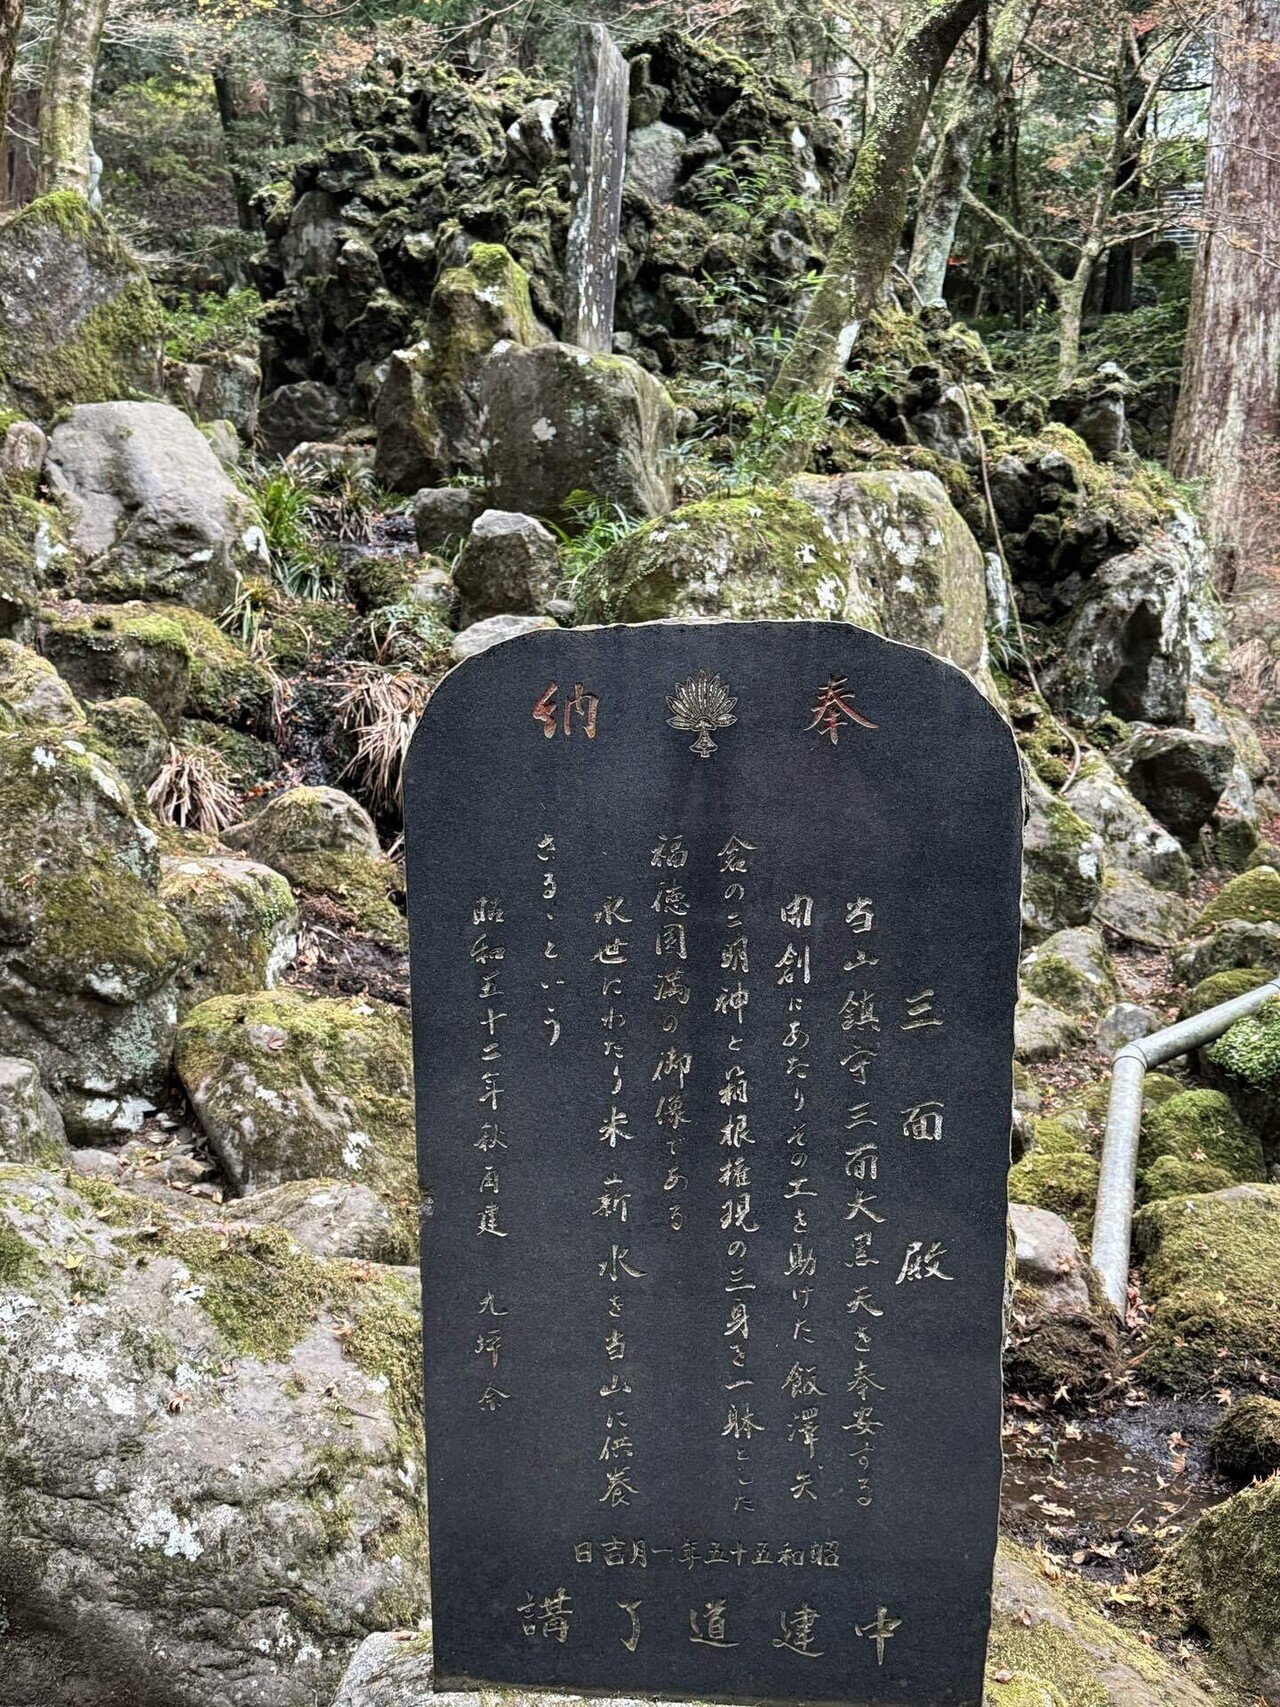 奉納
三面殿
当山鎮守三面大黒天を奉安する
開創にあたりその工を助けた飯澤、矢
倉の二明神と箱根権現の三身を一躰とした
福徳円満の御像である
永世にわたり米薪水を当山に供養
さるゝという
昭和五十二年秋再建 九坪余
昭和五十五年一月吉日
中建道了講